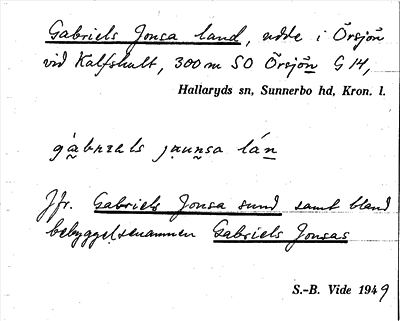 Gabriels Jonsa land, udde i Örsjön
vid Kalfshult, 300 m SO Örsjön G 14,
Hallaryds sn, Sunnerbo hd, Kron. l.
gàbrɪels jaunsa lán
Jfr. Gabriels Jonsa sund samt bland
bebyggelsenamnen Gabriels Jonsas
S.-B. Vide 1949